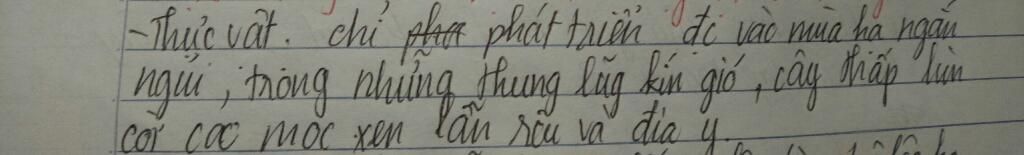 - Thực vật. chỉ phát triển đc vào mùa hạ ngắn
ngủi, trong những thung lũg kín gió, cây thấp lùn
còi cọc mọc xen lẫn rêu và địa y.